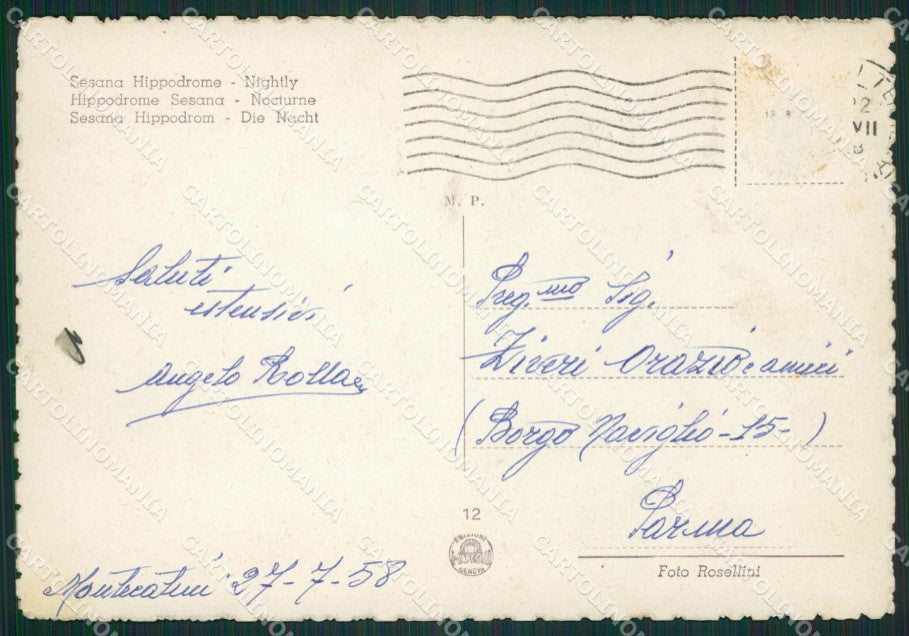 Sesana Hippodrome - Nightly
Hippodrome Sesana - Nocturne
Sesana Hippodrom - Die Nacht
M. P.
VII
Saluti
estensivi
Angelo Rolla
Preg.mo Sig.
Ziveri Orazio e amici
(Borgo Naviglio - 15 - )
Parma
12
EDIZIONI
GENOVA
Foto Rosellini
Montecatini 27-7-58
CARTOLINOMANIA